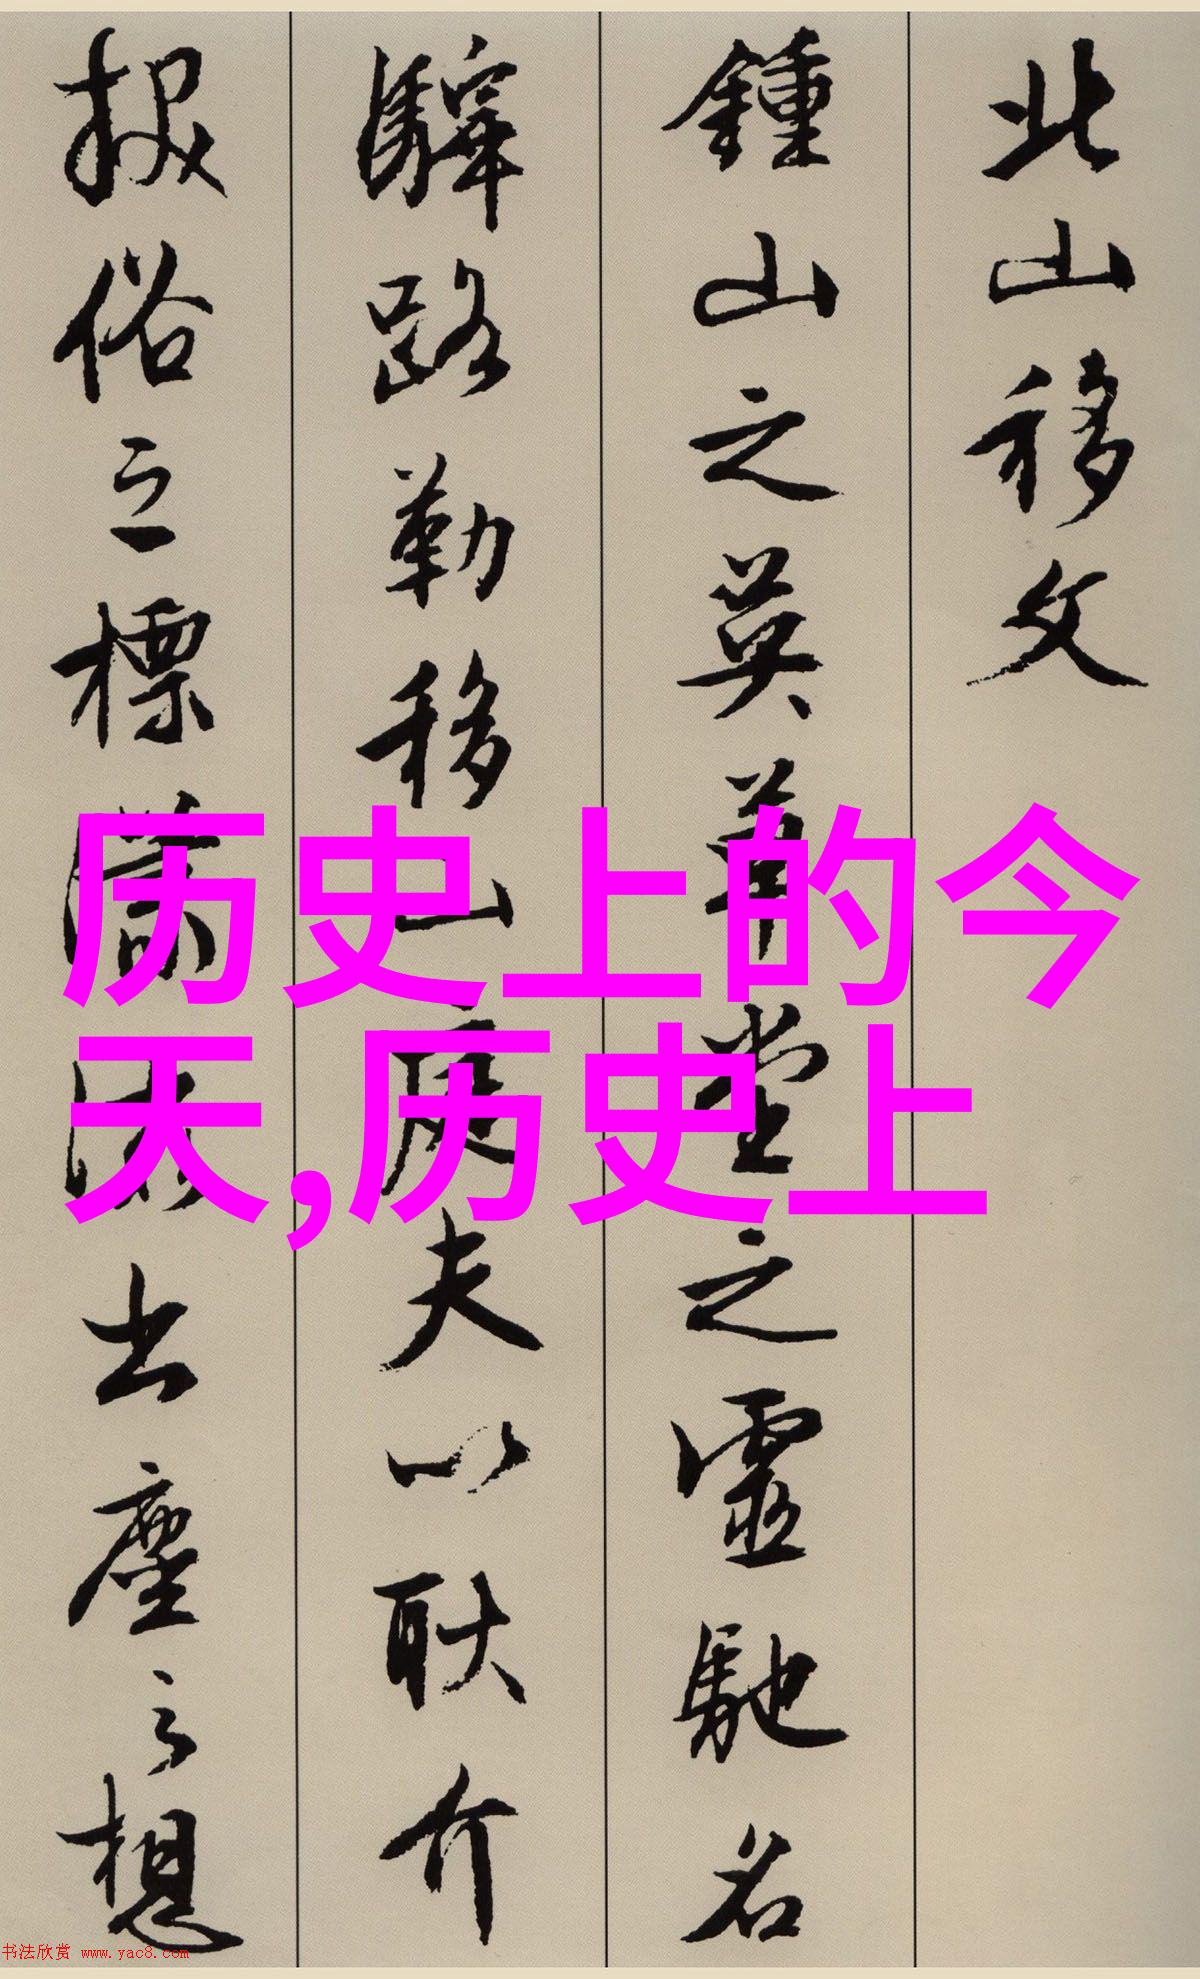 北山移文
鍾山之英草堂之靈馳名
驛路勒移山庭夫以耿介
拔俗之標瀟洒出塵之想
历史上的今
天,历史上
书法欣赏 www.yac8.com